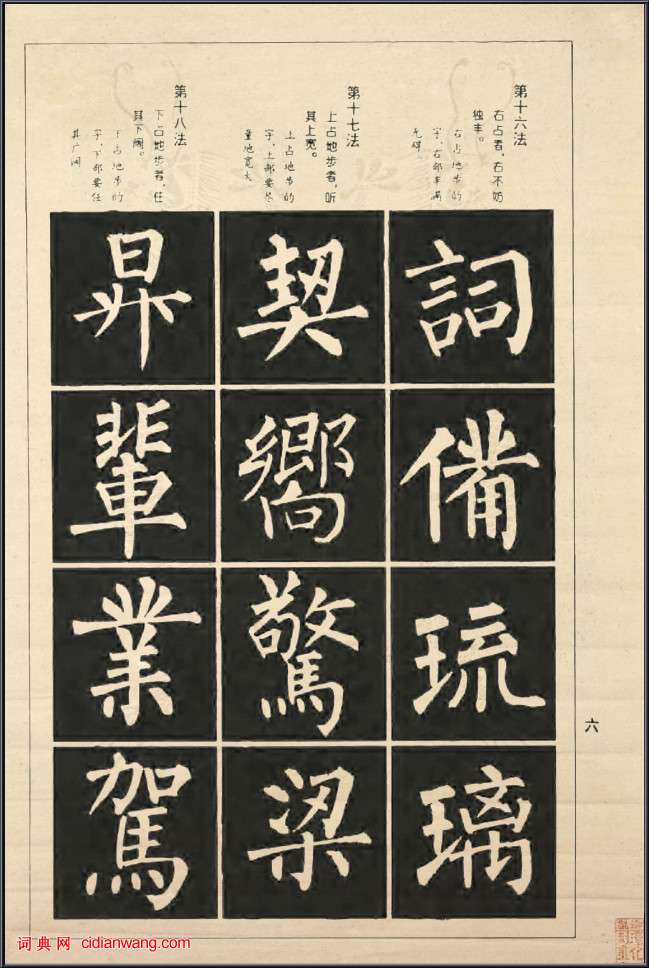 第十六法
右占者，右不妨
独丰。
右占地步的
字，右部丰满
无碍
詞
備
琉
璃
第十七法
上占地步者，听
其上宽。
上占地步的
字，上部要尽
量地宽大
契
嚮
驚
梁
第十八法
下占地步者，任
其下阔。
下占地步的
字，下部要任
其广阔
昇
輩
業
駕
六
词典网 cidianwang.com